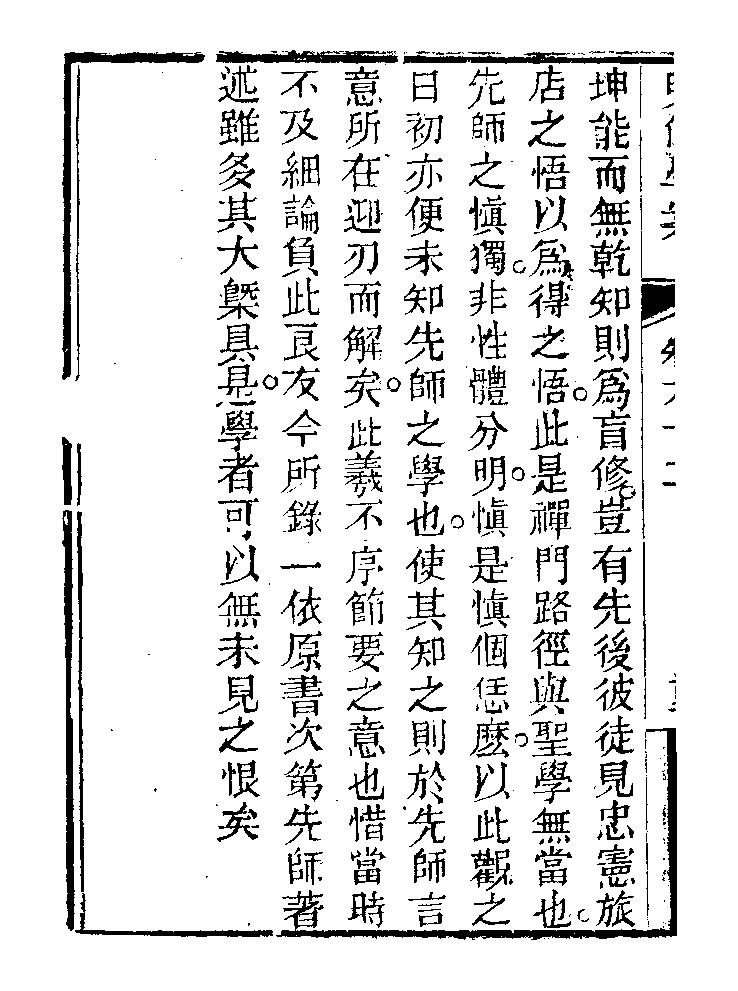 坤能而無乾知則爲盲修豈有先後彼徒見忠憲旅
店之悟以爲得之悟此是禪門路徑與聖學無當也
先師之愼獨非性體分明愼是愼個恁麽以此觀之
日初亦便未知先師之學也使其知之則於先師言
意所在迎刃而解矣此義不序節要之意也惜當時
不及細論負此良友今所錄一依原書次第先師著
述雖多其大槩具是學者可以無未見之恨矣